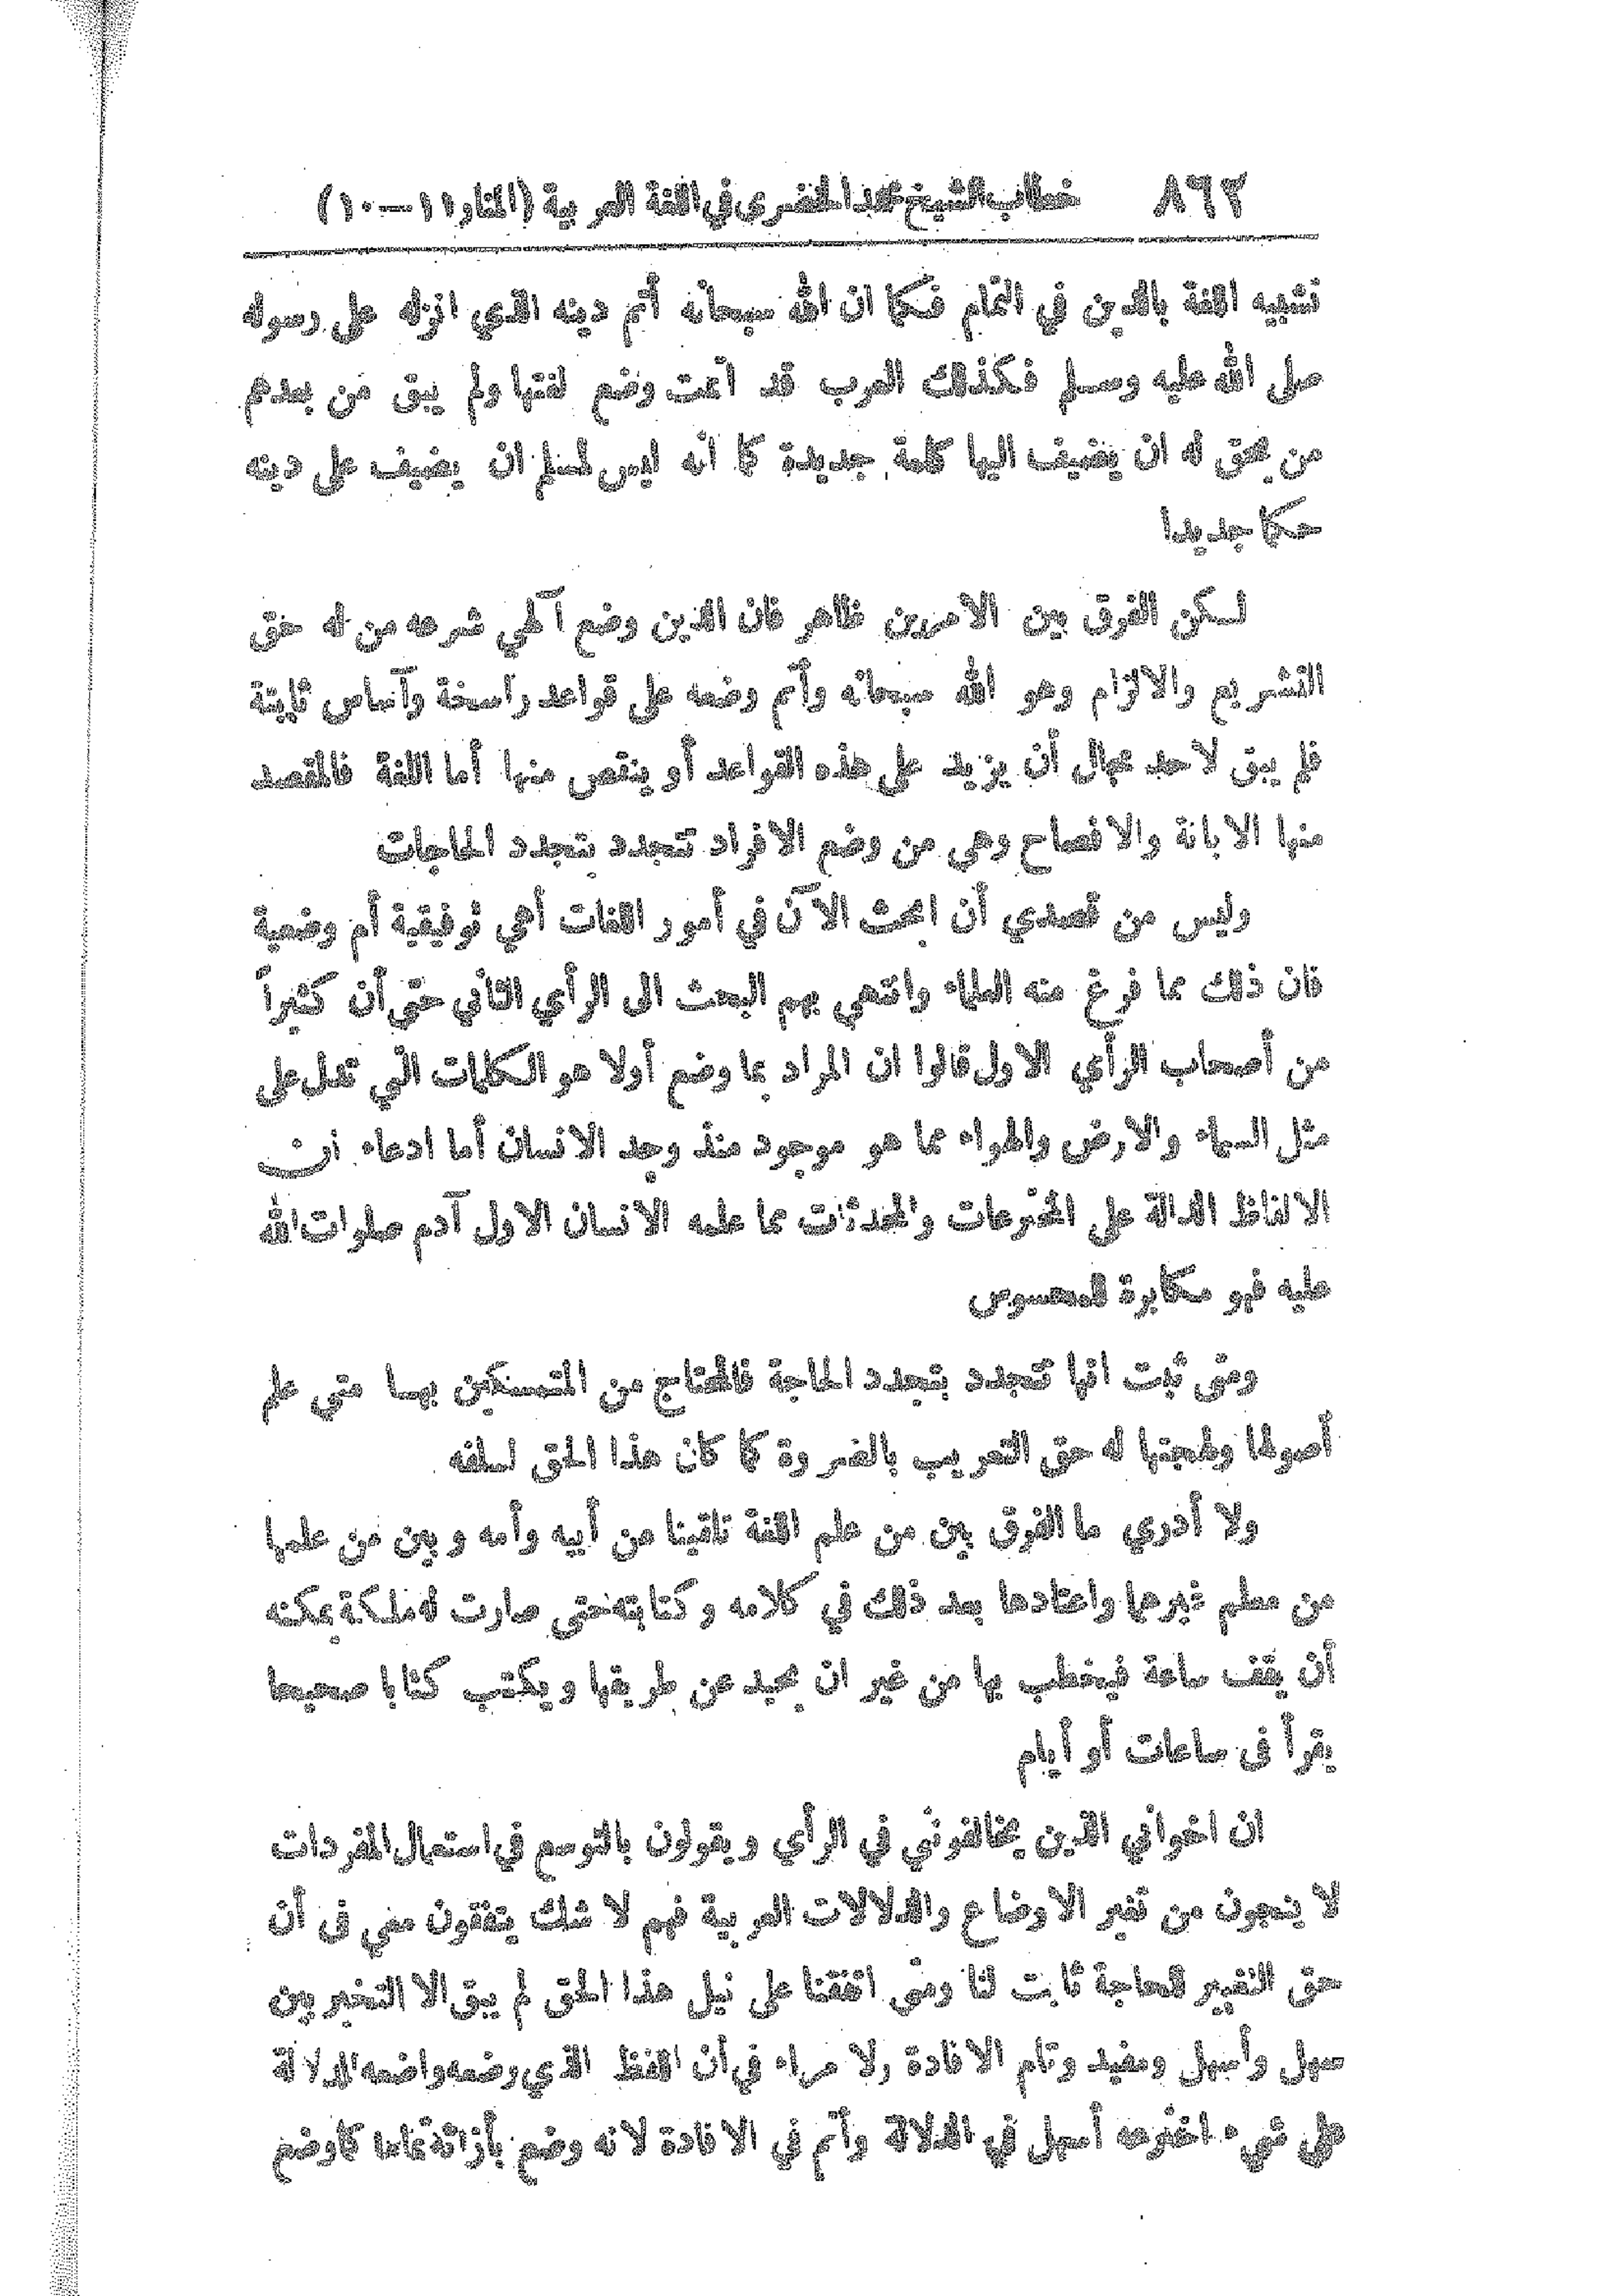 ٨٦٢ خطاب الشيخ محمد الخضرى في اللغة العربية (المنار ١١ــ١٠)
تشبيه اللغة بالدين في التمام فكما ان الله سبحانه أتم دينه الذي انزله على رسوله
صلى الله عليه وسلم فكذلك العرب قد أتمت وضع لغتها ولم يبق من بعدهم
من يحق له ان يضيف اليها كلمة جديدة كما انه ليس لمسلم ان يضيف على دينه
حكما جديدا
لكن الفرق بين الامرين ظاهر فان الدين وضع آلهي شرعه من له حق
التشريع والالزام وهو الله سبحانه وأتم وضعه على قواعد راسخة وآساس ثابتة
فلم يبق لاحد مجال أن يزيد على هذه القواعد أو ينتقص منها أما اللغة فالمقصد
منها الابانة والافصاح وهي من وضع الافراد تتجدد بتجدد الحاجات
وليس من قصدي أن ابحث الآن في أمور اللغات أهي توفيقية أم وضعية
فان ذلك مما فرغ منه العلماء وانتهى بهم البحث الى الرأي الثاني حتى أن كثيراً
من أصحاب الرأي الاول قالوا ان المراد بما وضع أولا هو الكلمات التي تدل على
مثل السماء والارض والهواء مما هو موجود منذ وجد الانسان أما ادعاء ان
الالفاظ الدالة على المخترعات والمحدثات مما علمه الانسان الاول آدم صلوات الله
عليه فهو مكابرة للمحسوس
ومتى ثبت انها تتجدد بتجدد الحاجة فالمحتاج من المتمسكين بها متى علم
أصولها ولهجتها له حق التعريب بالضروة كما كان هذا الحق لسلفه
ولا أدري ما الفرق بين من علم اللغة تلقينا من أبيه وأمه وبين من علمها
من معلم غيرهما واعتادها بعد ذلك في كلامه وكتابته حتى صارت له ملكة يمكنه
أن يقف ساعة فيخطب بها من غير ان يحيد عن طريقها ويكتب كتابا صحيحا
يقرأ فى ساعات أو أيام
ان اخواني الذين يخالفوني في الرأي ويقولون بالتوسع في استعمال المفردات
لا ينجون من تغير الاوضاع والدلالات العربية فهم لا شك يتفقون معي فى أن
حق التغيير للحاجة ثابت لنا ومتى اتفقنا على نيل هذا الحق لم يبق الا التخير بين
سهل وأسهل ومفيد وتام الافادة ولا مراء في أن اللفظ الذي وضعه واضعه للدلالة
على شيء اخترعه أسهل في الدلالة وأتم في الافادة لانه وضع بأزائه تماما كما وضع